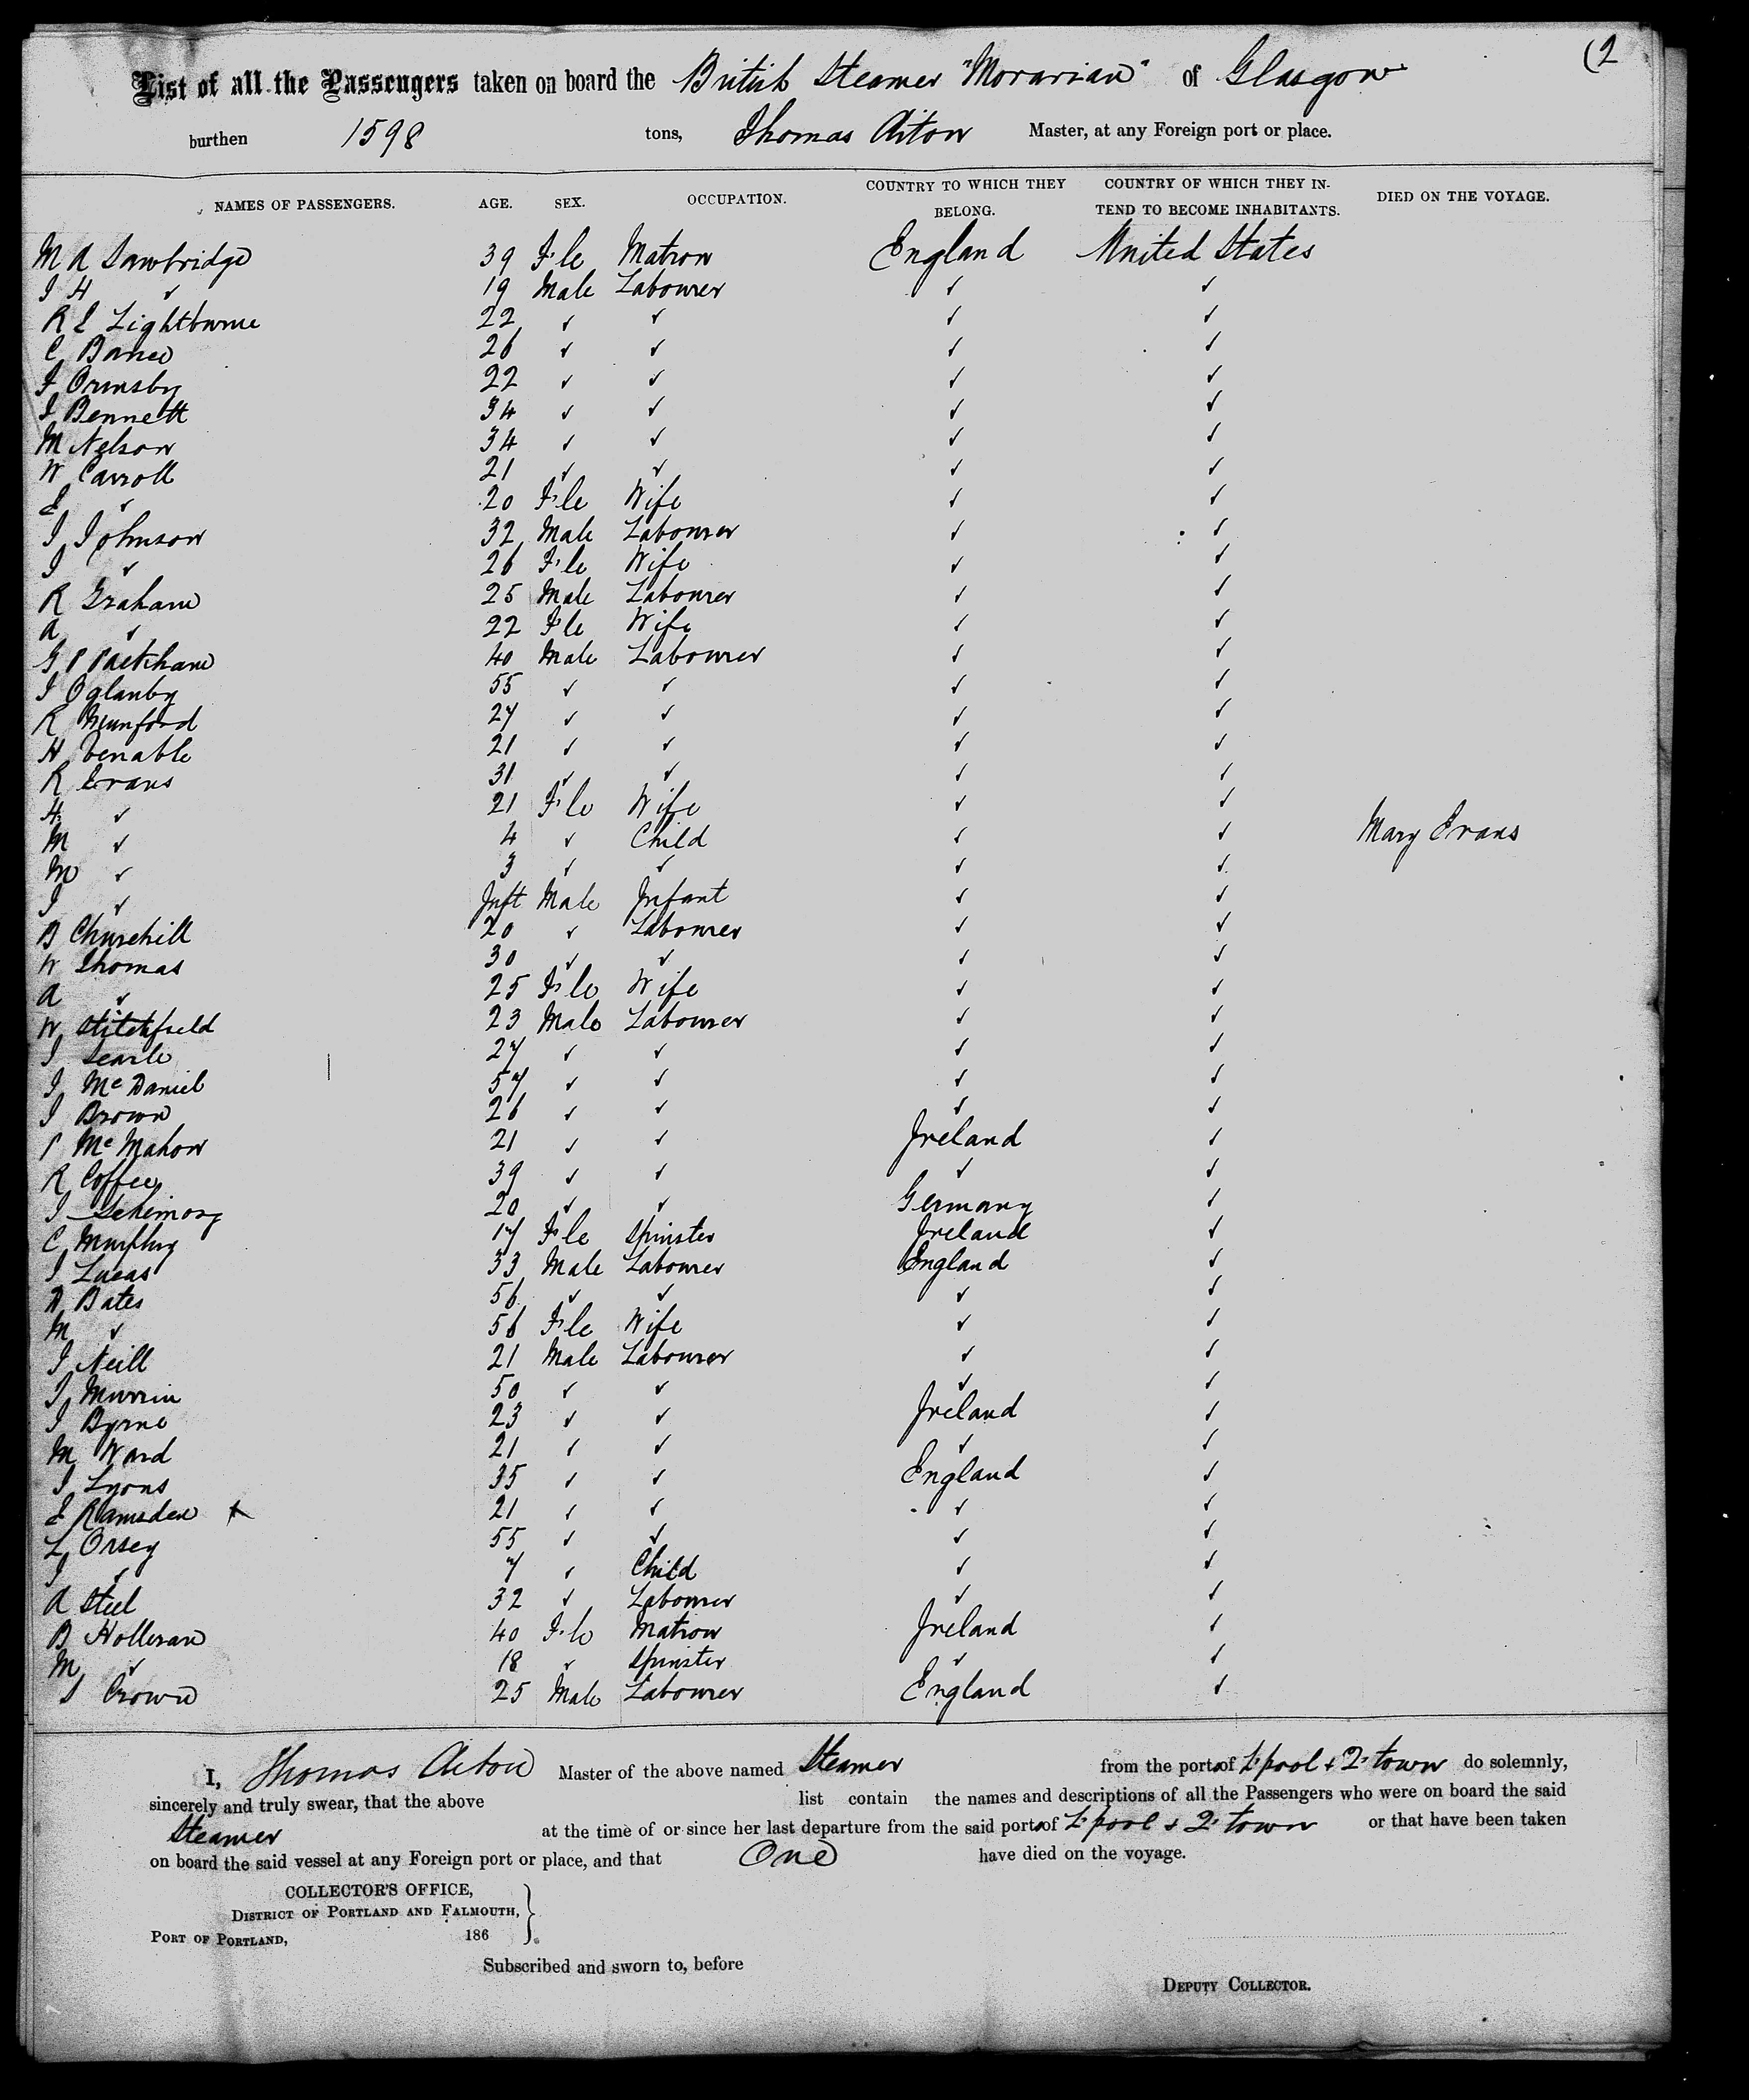 (2
List of all the Passengers taken on board the British Steamer "Moravian" of Glasgow
burthen 1598 tons, Thomas Aiton Master, at any Foreign port or place.
NAMES OF PASSENGERS. AGE. SEX. OCCUPATION. COUNTRY TO WHICH THEY BELONG. COUNTRY OF WHICH THEY INTEND TO BECOME INHABITANTS. DIED ON THE VOYAGE.
M A Sawbridge 39 F.le Matron England United States
J H ✓ 19 Male Labourer ✓ ✓
R E Lightburne 22 ✓ ✓ ✓ ✓
C 26 ✓ ✓ ✓ ✓
J Ormsby 22 ✓ ✓ ✓ ✓
J Bennett 34 ✓ ✓ ✓ ✓
M Nelson 34 ✓ ✓ ✓ ✓
W Carroll 21 ✓ ✓ ✓ ✓
E ✓ 20 F.le Wife ✓ ✓
J Johnson 32 Male Labourer ✓ ✓
J ✓ 26 F.le Wife ✓ ✓
R Graham 25 Male Labourer ✓ ✓
A ✓ 22 F.le Wife ✓ ✓
G P Packham 40 Male Labourer ✓ ✓
J Oglanby 55 ✓ ✓ ✓ ✓
R Munford 27 ✓ ✓ ✓ ✓
H Venable 21 ✓ ✓ ✓ ✓
R Evans 31 ✓ ✓ ✓ ✓
H ✓ 21 F.le Wife ✓ ✓
M ✓ 4 ✓ Child ✓ ✓ Mary Evans
M ✓ 3 ✓ ✓ ✓ ✓
J ✓ Inft Male Infant ✓ ✓
B Churchill 20 ✓ Labourer ✓ ✓
W Thomas 30 ✓ ✓ ✓ ✓
A ✓ 25 F.le Wife ✓ ✓
W Stitchfield 23 Male Labourer ✓ ✓
J Searle 27 ✓ ✓ ✓ ✓
J McDaniel 57 ✓ ✓ ✓ ✓
J Brown 26 ✓ ✓ ✓ ✓
P McMahon 21 ✓ ✓ Ireland ✓
R Coffee 39 ✓ ✓ ✓ ✓
J 20 ✓ ✓ Germany ✓
C Murphy 17 F.le Spinster Ireland ✓
J Lucas 33 Male Labourer England ✓
D Bates 56 ✓ ✓ ✓ ✓
M ✓ 56 F.le Wife ✓ ✓
J Neill 21 Male Labourer ✓ ✓
J Murrin 50 ✓ ✓ ✓ ✓
J Byrne 23 ✓ ✓ Ireland ✓
M Ward 21 ✓ ✓ ✓ ✓
J Lyons 35 ✓ ✓ England ✓
E Ramsden x 21 ✓ ✓ ✓ ✓
L Orsey 55 ✓ ✓ ✓ ✓
J ✓ 7 ✓ Child ✓ ✓
A Steel 32 ✓ Labourer ✓ ✓
B Holleran 40 F.le Matron Ireland ✓
M ✓ 18 ✓ Spinster ✓ ✓
S Crown 25 Male Labourer England ✓
I, Thomas Aiton Master of the above named Steamer from the port of L'pool & Q'town do solemnly,
sincerely and truly swear, that the above list contain the names and descriptions of all the Passengers who were on board the said
Steamer at the time of or since her last departure from the said port of L'pool & Q'town or that have been taken
on board the said vessel at any Foreign port or place, and that One have died on the voyage.
COLLECTOR'S OFFICE,
DISTRICT OF PORTLAND AND FALMOUTH,
PORT OF PORTLAND, 186
Subscribed and sworn to, before
DEPUTY COLLECTOR.